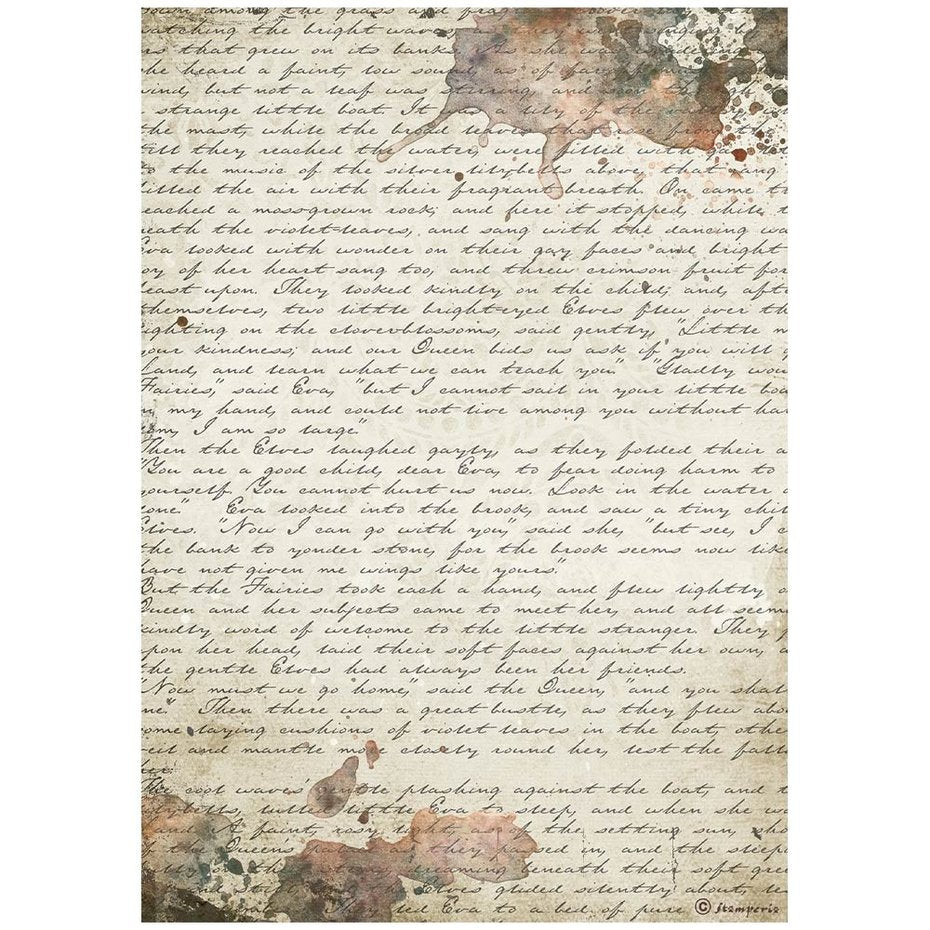 down among the grass and frag
watching the bright waves, as
rs that grew on its banks. As she was wandering
he heard a faint, low sound, as of far
wind, but not a leaf was stirring, and soon
a strange little boat. It was a lily of the
the mast, while the broad leaves that rose from the
till they reached the water, were filled with ga
to the music of the silver lilybells above, that sang
filled the air with their fragrant breath. On came t
reached a moss-grown rock; and here it stopped, while t
neath the violet-leaves, and sang with the dancing wa
Eva looked with wonder on their gay faces and bright
joy of her heart sang too, and threw crimson fruit for
feast upon. They looked kindly on the child, and, afte
themselves, two little bright-eyed Elves flew over th
ighting on the cloverblossoms, said gently, "Little m
your kindness; and our Queen bids us ask if you will g
Land, and learn what we can teach you." "Gladly wou
Fairies," said Eva, "but I cannot sail in your little boa
in my hand, and could not live among you without har
om, I am so large."
Then the Elves laughed gayly, as they folded their a
"You are a good child, dear Eva, to fear doing harm to
yourself. You cannot hurt us now. Look in the water a
one." Eva looked into the brook, and saw a tiny chil
Elves. "Now I can go with you," said she, "but see, I c
the bank to yonder stone, for the brook seems now like
have not given me wings like yours."
But the Fairies took each a hand, and flew lightly o
Queen and her subjects came to meet her, and all seem
kindly word of welcome to the little stranger. They p
upon her head, laid their soft faces against her own, a
the gentle Elves had always been her friends.
"Now must we go home," said the Queen, "and you shal
me." Then there was a great bustle, as they flew abo
some laying cushions of violet leaves in the boat, othe
veil and mantle more closely round her, lest the fall
her.
The cool waves' gentle plashing against the boat, and t
lilybells, lulled little Eva to sleep, and when she wo
Land. A faint, rosy light, as of the setting sun, sho
of the Queens palace as they passed in, and the sleepe
on the streaming beneath their soft gre
and still, the Elves glided silently about, le
They led Eva to a bed of pure
© stamperia